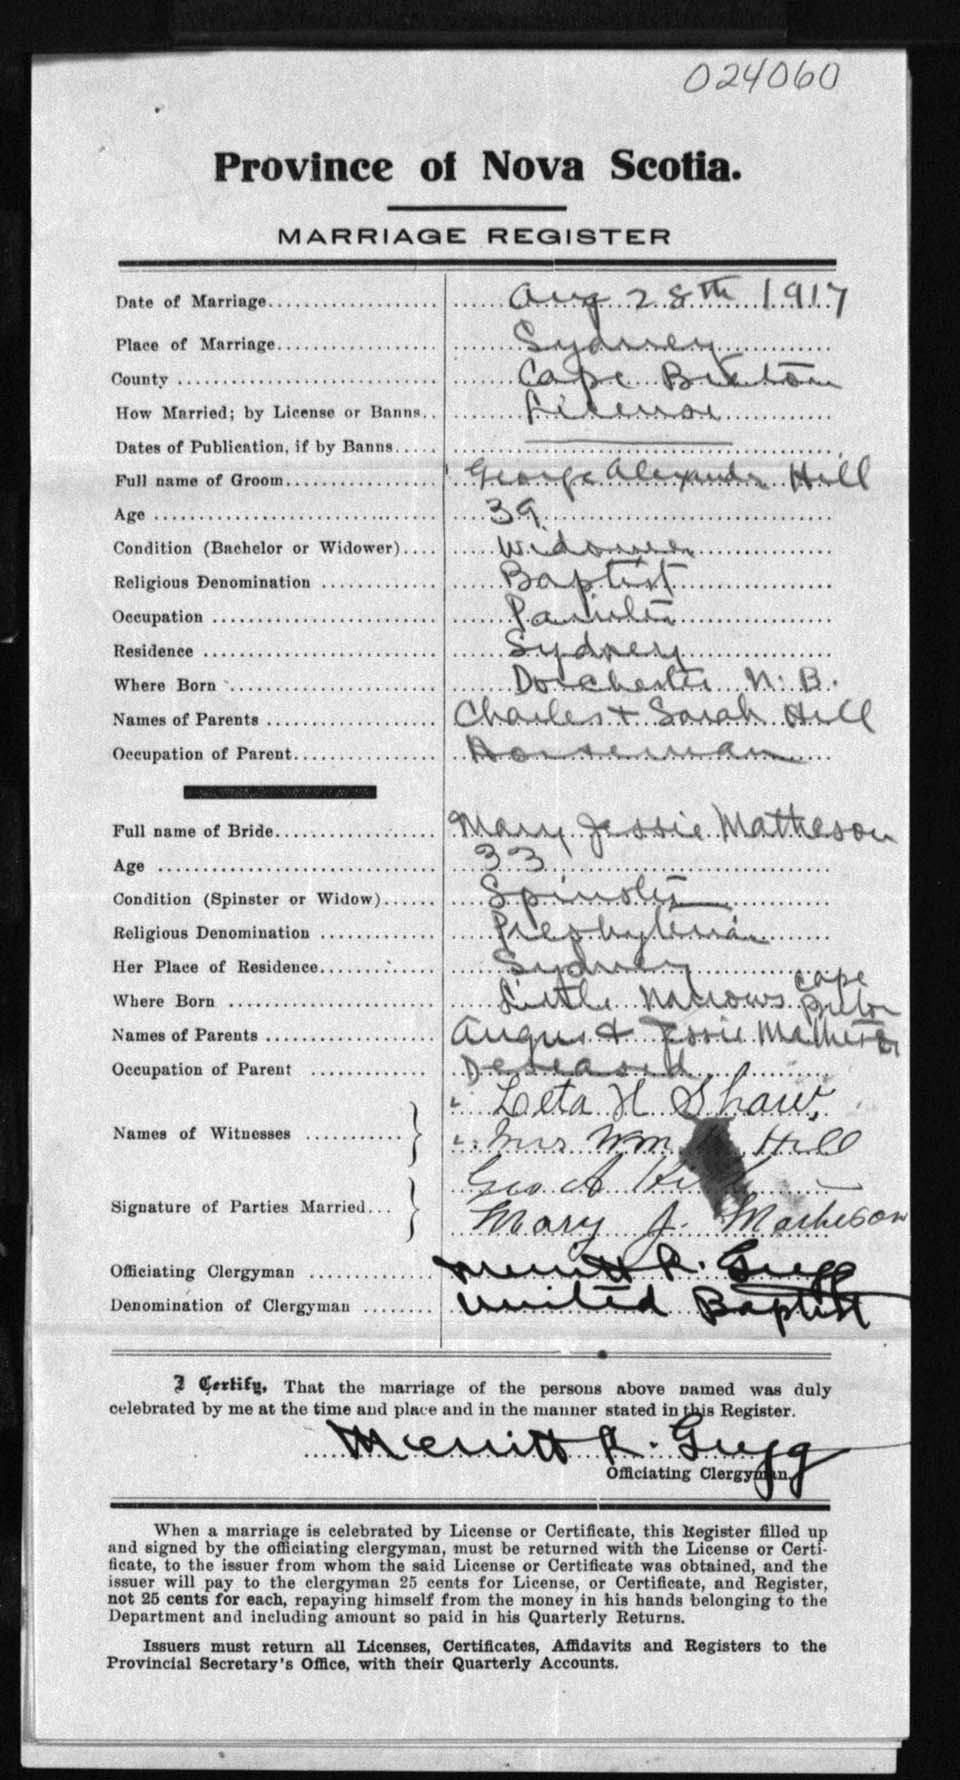 024060
Province of Nova Scotia.
MARRIAGE REGISTER
Date of Marriage Aug 28th 1917
Place of Marriage Sydney
County Cape Breton
How Married; by License or Banns License
Dates of Publication, if by Banns
Full name of Groom George Alexander Hill
Age 39
Condition (Bachelor or Widower) Widower
Religious Denomination Baptist
Occupation Painter
Residence Sydney
Where Born Dorchester N.B.
Names of Parents Charles + Sarah Hill
Occupation of Parent Horseman
Full name of Bride Mary Jessie Matheson
Age 33
Condition (Spinster or Widow) Spinster
Religious Denomination Presbyterian
Her Place of Residence Sydney
Where Born Little Narrows Cape Breton
Names of Parents Angus + Jessie Matheson
Occupation of Parent Deseased
Names of Witnesses Leta H Shaw,
Mrs Wm Hill
Signature of Parties Married Geo A Hill
Mary J. Matheson
Officiating Clergyman Merritt R. Gregg
Denomination of Clergyman United Baptist
I Certify, That the marriage of the persons above named was duly
celebrated by me at the time and place and in the manner stated in this Register.
Merritt R. Gregg
Officiating Clergyman.
When a marriage is celebrated by License or Certificate, this Register filled up
and signed by the officiating clergyman, must be returned with the License or Certi-
ficate, to the issuer from whom the said License or Certificate was obtained, and the
issuer will pay to the clergyman 25 cents for License, or Certificate, and Register,
not 25 cents for each, repaying himself from the money in his hands belonging to the
Department and including amount so paid in his Quarterly Returns.
Issuers must return all Licenses, Certificates, Affidavits and Registers to the
Provincial Secretary's Office, with their Quarterly Accounts.